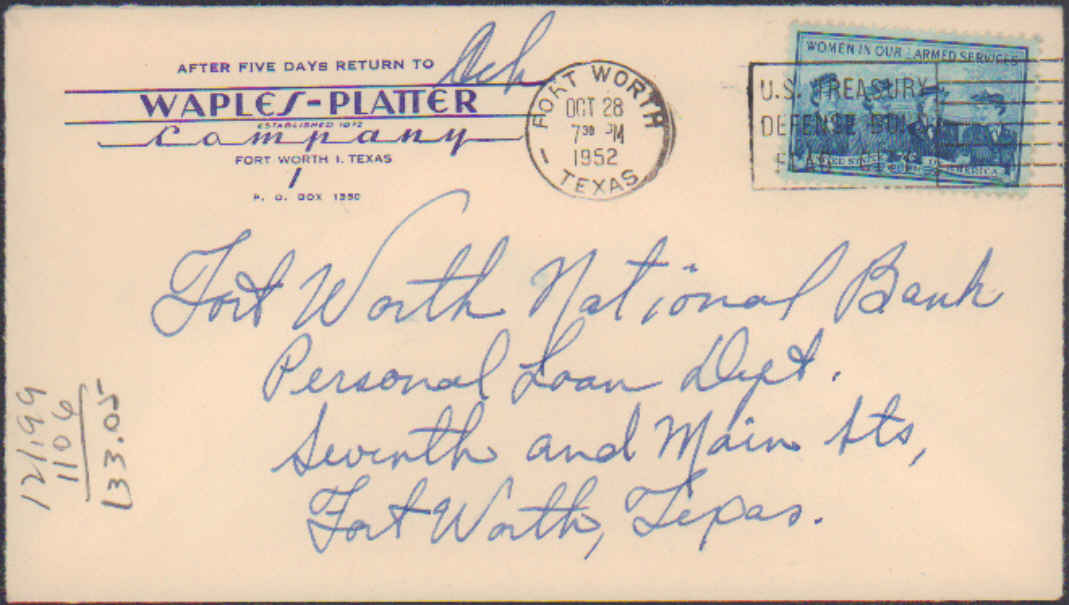 AFTER FIVE DAYS RETURN TO
WAPLES-PLATTER
ESTABLISHED 1872
Company
FORT WORTH 1, TEXAS
P. O. BOX 1350
FORT WORTH
OCT 28
7 30 PM
1952
TEXAS
U.S. TREASURY
DEFENSE
WOMEN IN OUR ARMED SERVICES
UNITED STATES OF AMERICA
Fort Worth National Bank
Personal Loan Dept.
Seventh and Main Sts,
Fort Worth, Texas.
121.99
11 06
133.05